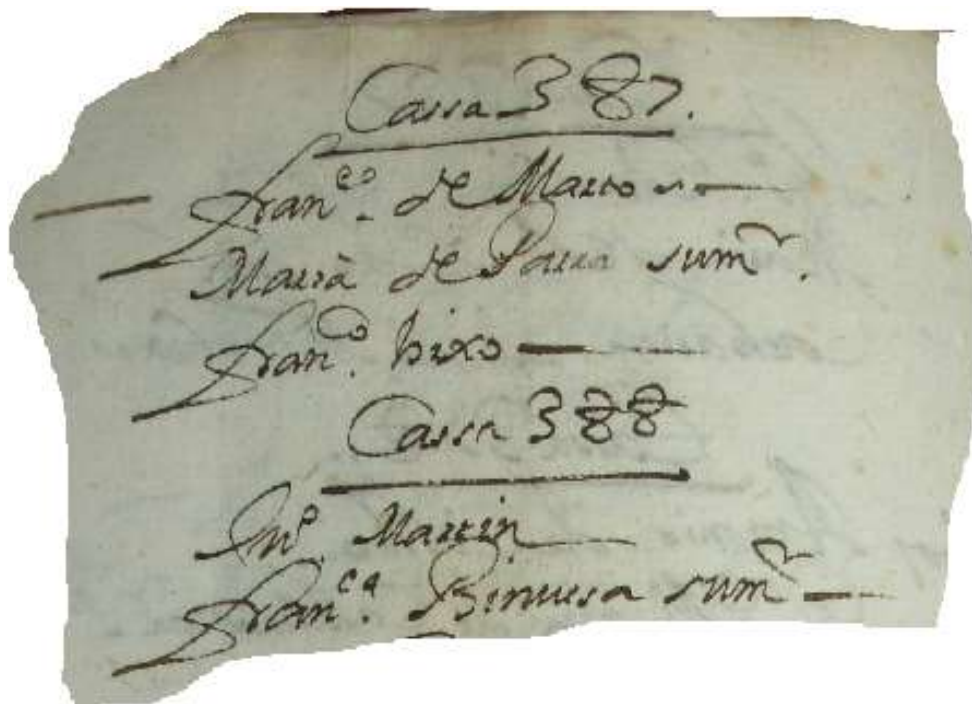 Cassa 387.
fran.co de Marto
Maria de Parra sumr.
fran.co hixo
Cassa 388
Juo. Martin
fran.ca Binuesa sumr